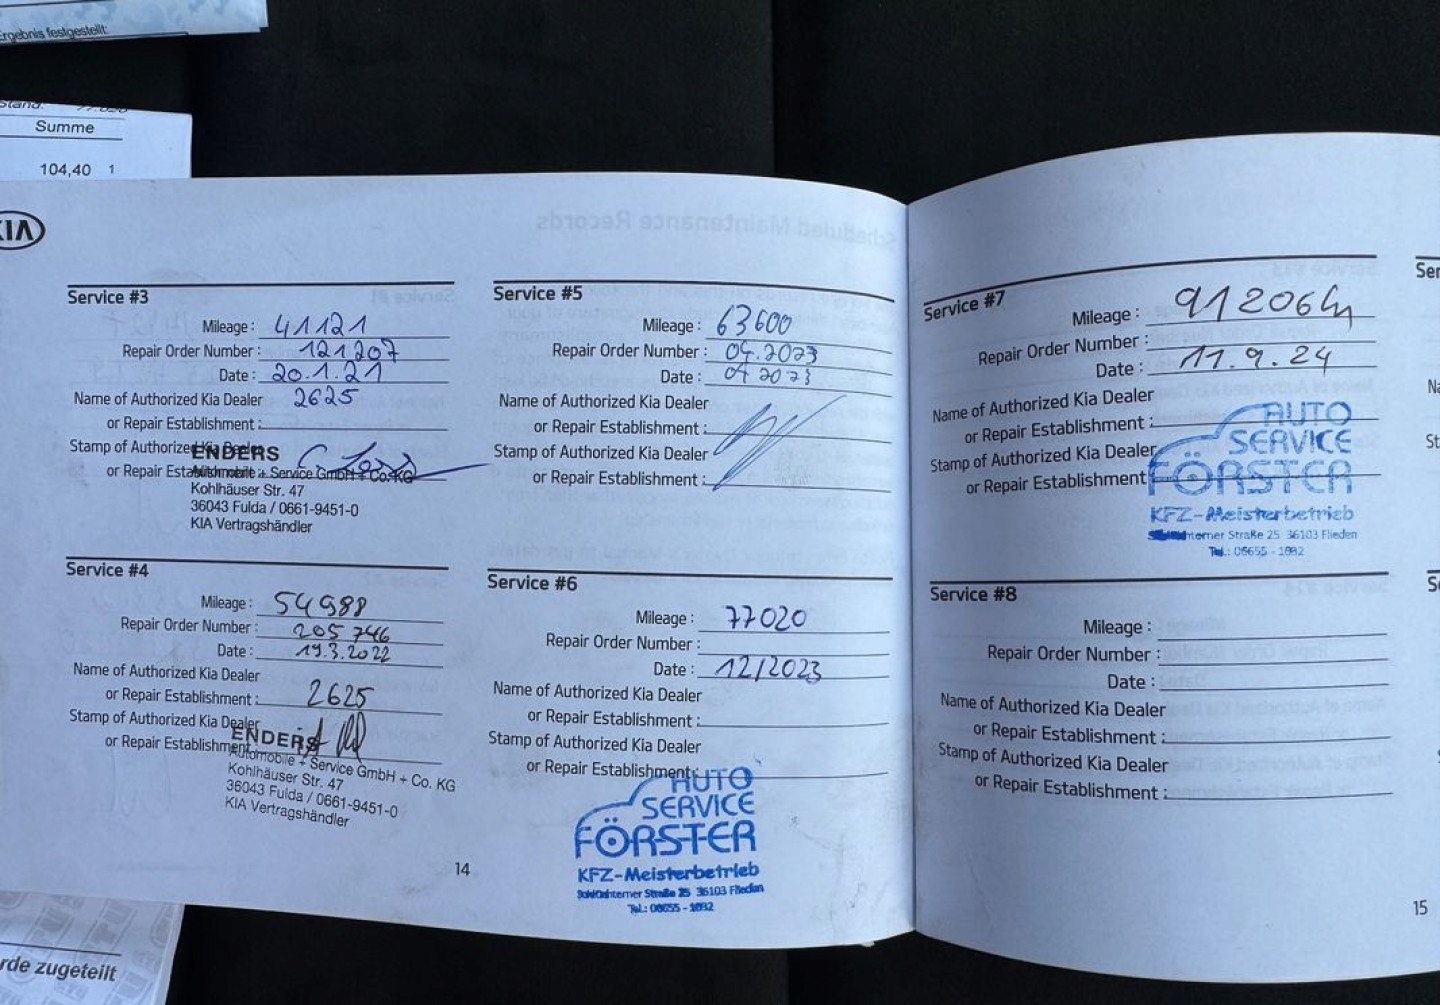 Ergebnis festgestellt:
Stand: 77.020
Summe
104,40 1
KIA
Service #3
Mileage: 41121
Repair Order Number: 121207
Date: 20.1.21
Name of Authorized Kia Dealer 2625
or Repair Establishment:
Stamp of Authorized Kia Dealer
or Repair Establishment:
ENDERS
Automobile + Service GmbH + Co. KG
Kohlhäuser Str. 47
36043 Fulda / 0661-9451-0
KIA Vertragshändler
Service #4
Mileage: 54988
Repair Order Number: 205746
Date: 19.3.2022
Name of Authorized Kia Dealer
or Repair Establishment: 2625
Stamp of Authorized Kia Dealer
or Repair Establishment:
ENDERS
Automobile + Service GmbH + Co. KG
Kohlhäuser Str. 47
36043 Fulda / 0661-9451-0
KIA Vertragshändler
14
Service #5
Mileage: 63600
Repair Order Number: 04.2023
Date: 04 2023
Name of Authorized Kia Dealer
or Repair Establishment:
Stamp of Authorized Kia Dealer
or Repair Establishment:
Service #6
Mileage: 77020
Repair Order Number:
Date: 12/2023
Name of Authorized Kia Dealer
or Repair Establishment:
Stamp of Authorized Kia Dealer
or Repair Establishment:
AUTO
SERVICE
FÖRSTER
KFZ-Meisterbetrieb
Straße 25 36103 Flieden
Tel.: 06655 - 1882
Service #7
Mileage: 91206 km
Repair Order Number:
Date: 11.9.24
Name of Authorized Kia Dealer
or Repair Establishment:
Stamp of Authorized Kia Dealer
or Repair Establishment
AUTO
SERVICE
FÖRSTER
KFZ-Meisterbetrieb
Straße 25 36103 Flieden
Tel.: 06655 - 1882
Service #8
Mileage:
Repair Order Number:
Date:
Name of Authorized Kia Dealer
or Repair Establishment:
Stamp of Authorized Kia Dealer
or Repair Establishment:
15
rde zugeteilt